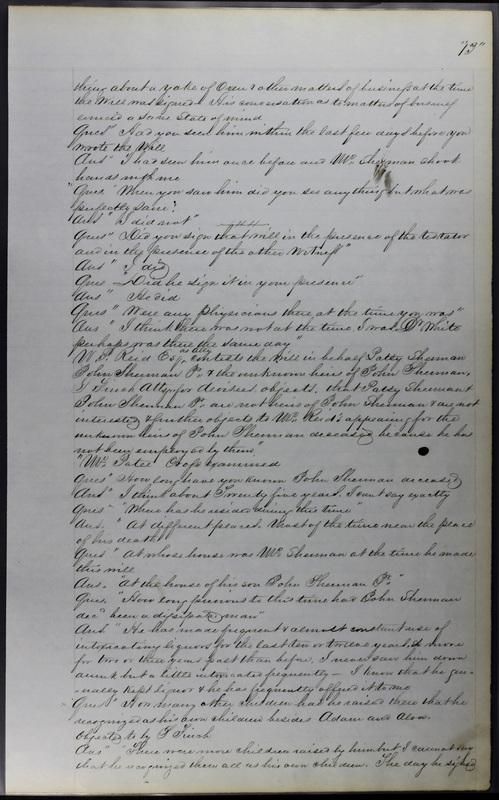 73"
thing about a yoke of Oxen & other matters of business at the time
the Will was signed. His conversation as to matters of business
evinced a sane State of mind
Ques" Had you seen him within the last few days before you
wrote the Will
Ans" I had seen him once before and Mr Sherman shook
hands with me
"Ques" When you saw him did you see anything but what was
perfectly sane?
Ans" I did not"
Ques" Did you sign that will in the presence of the testator
and in the presence of the other Witness"
Ans" I did
Ques – Did he sign it in your presence"
Ans" He did
Ques" Were any physicians there at the time you was"
Ans" I think there was not at the time I was. Dr White
perhaps was there the same day"
W. P. Reid Esq as atty contests the will in behalf Patsy Sherman
John Sherman Jr. & the unknown heirs of John Sherman,
S Finch Atty for devisees objects, that Patsy Sherman &
John Sherman Jr. are not heirs of John Sherman & are not
interested & further objects to Mr. Reid's appearing for the
unknown heirs of John Sherman deceased because he has
not been employed by them.
"Mr. Pate" Cross Examined
Ques" How long have you known John Sherman deceased
Ans" I think about Twenty five years. I cant say exactly
Ques – "Where has he resided during this time"
Ans. "At different places. Most of the time near the place
of his death"
Ques" At whose house was Mr. Sherman at the time he made
this will
Ans. "At the house of his son John Sherman Jr."
Ques. "How long previous to this time had John Sherman
decd been a dissipated man"
Ans" He has made frequent & almost constant use of
intoxicating liquors for the last ten or twelve years, & more
for two or three years past than before. I never saw him down
drunk but a little intoxicated frequently – I know that he gen-
-erally kept liquor & he has frequently offered it to me
Ques" How many other children had he raised there that he
recognized as his own children besides Adam and
Objected to by S Finch
Ans" There were more children raised by him but I cannot say
that he recognized them all as his own children. The day he signed